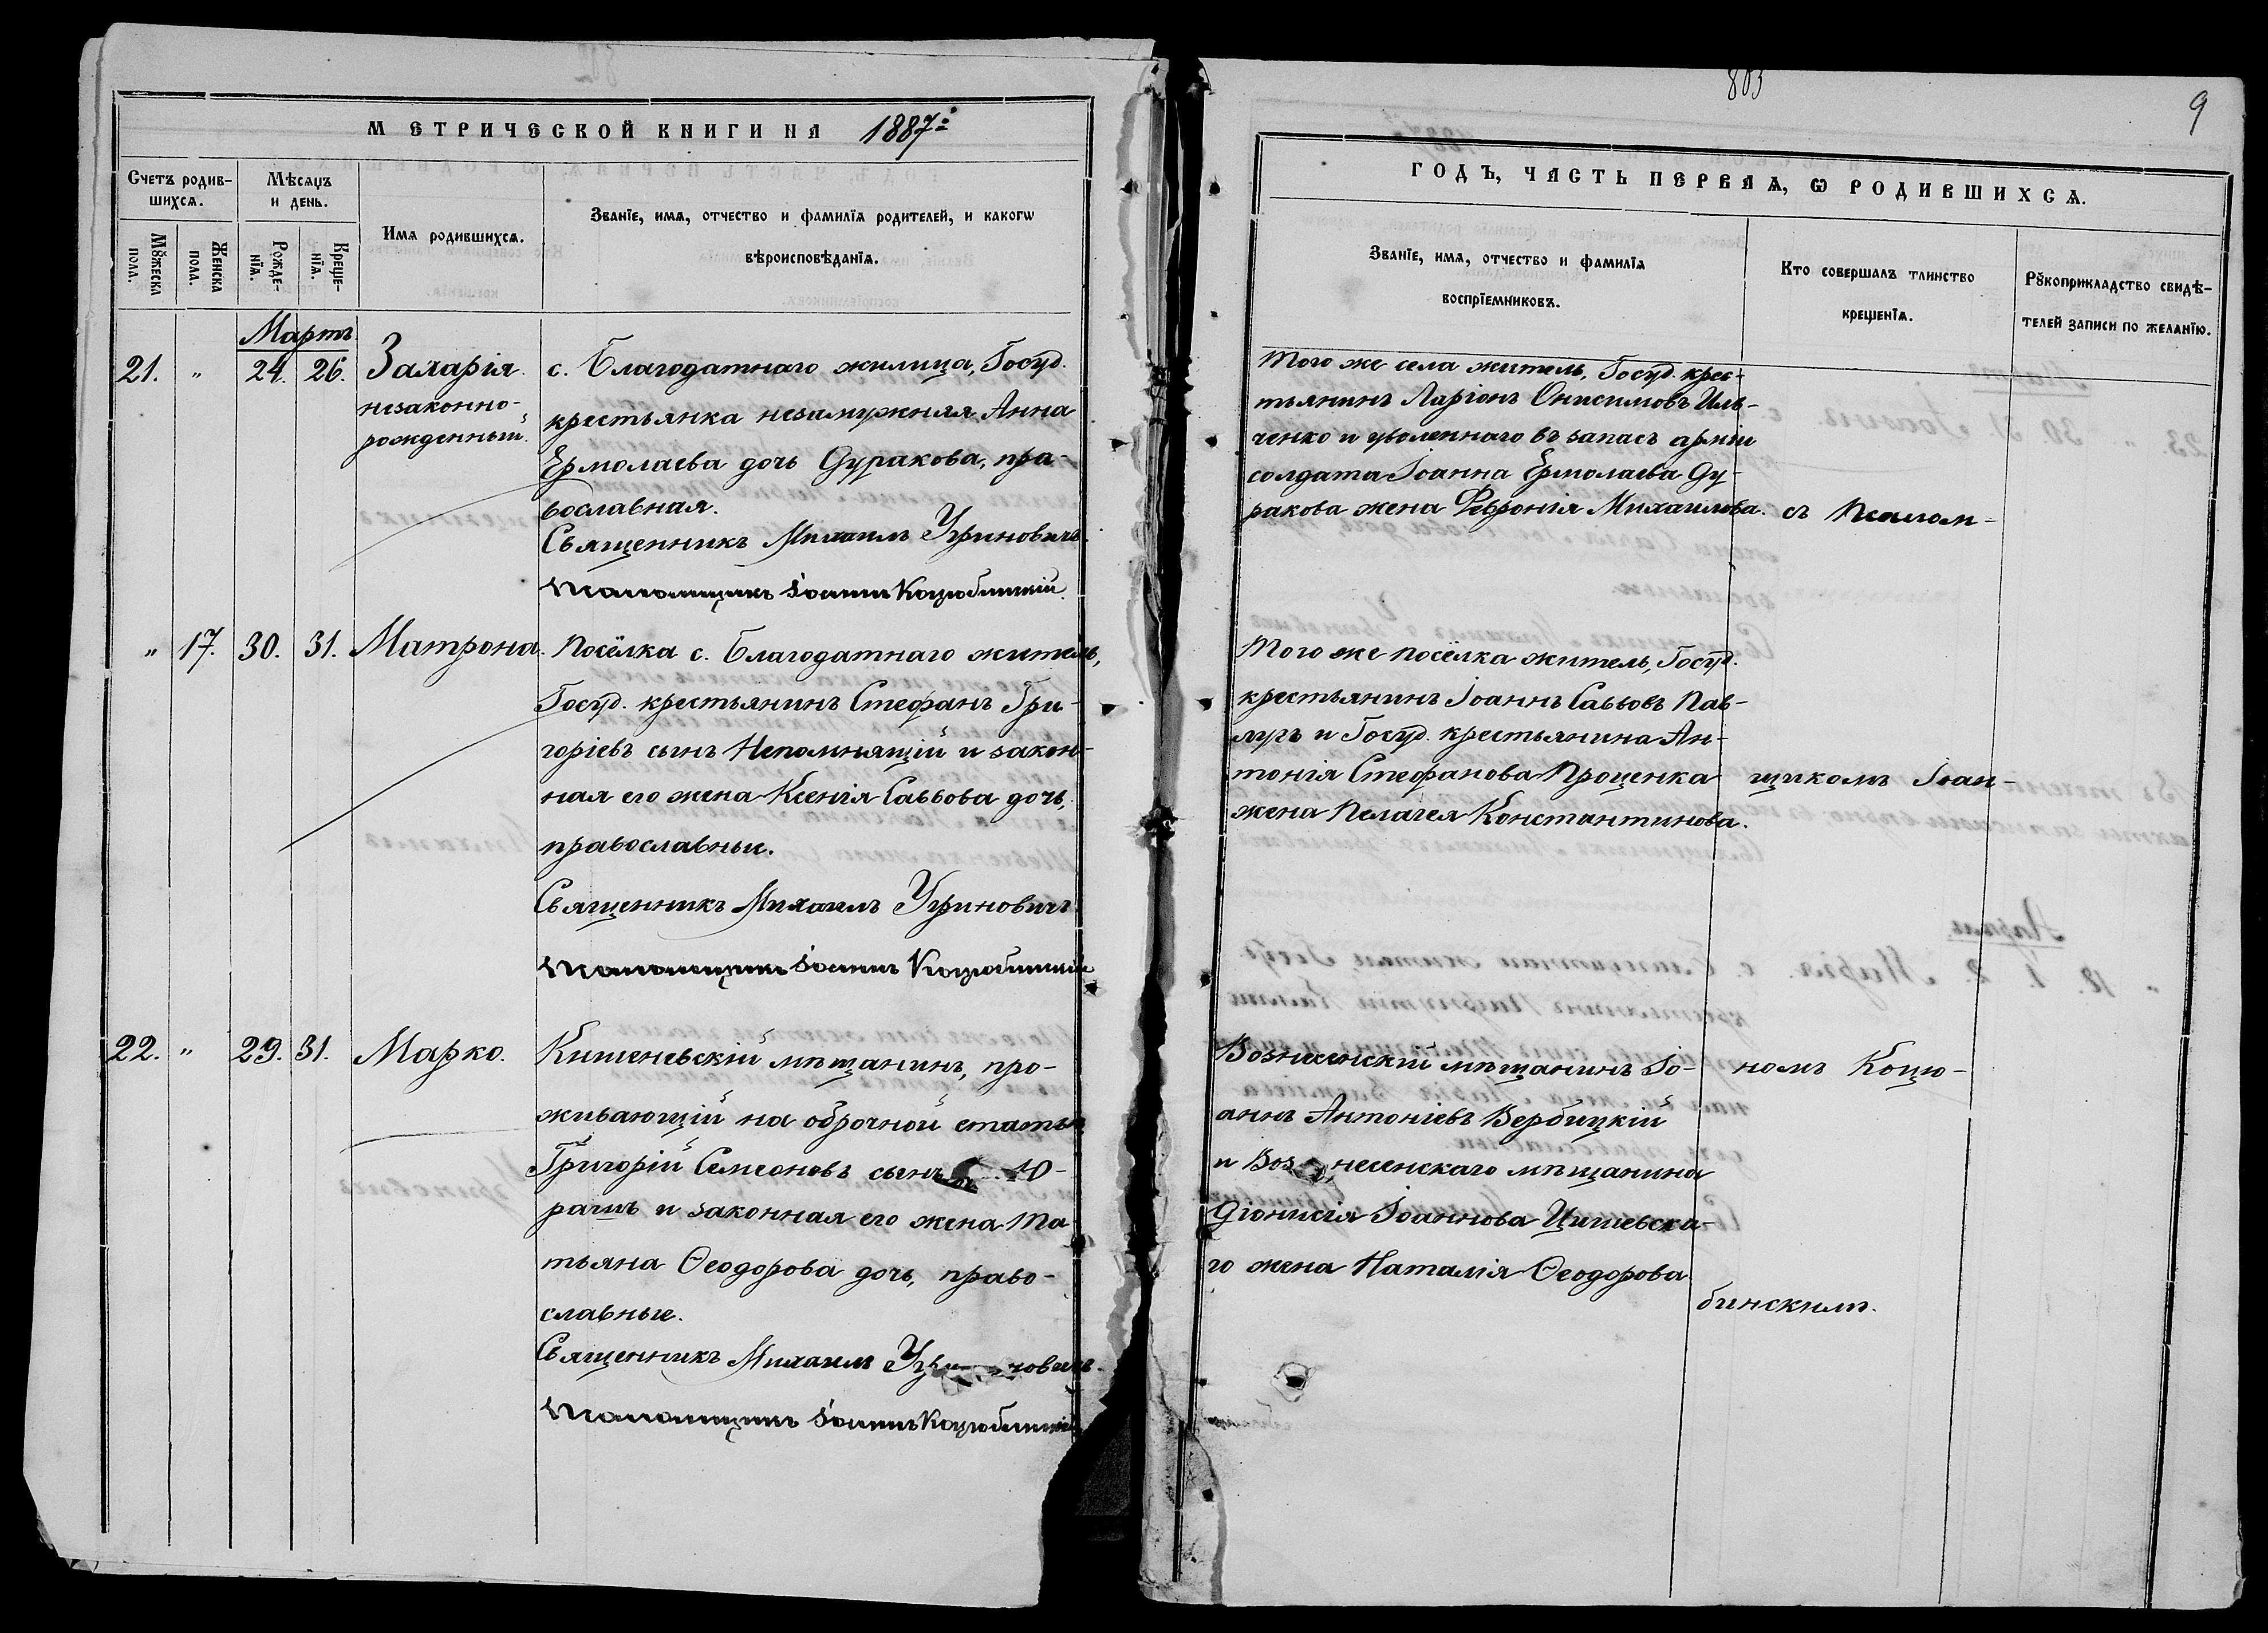 МЕТРИЧЕСКОЙ КНИГИ НА 1887й
Счетъ родив-
шихся.
Мѣсяцъ
и день.
Мꙋжеска
пола.
Женска
пола.
Рожде-
нїя.
Креще-
нїя.
Имя родившихся.
Званїе, имя, отчество и фамилїя родителей, и какогѡ
вѣроисповѣданїя.
Мартъ
21. " 24. 26. Захарія
незаконно-
рожденный.
с. Благодатнаго жилица, Госуд.
крестьянка незамужняя Анна
Ермолаева дочь Дуракова, пра-
вославная.
Священникъ Михаилъ Угриновичъ.
Псаломщикъ Іоаннъ Коцюбинскій.
" 17. 30. 31. Матрона.
Посёлка с. Благодатнаго житель,
Госуд. крестьянинъ Стефанъ Гри-
горіевъ сынъ Непомнящій и закон-
ная его жена Ксенія Саввова дочь,
православные.
Священникъ Михаилъ Угриновичъ
Псаломщикъ Іоаннъ Коцюбинскій
22. " 29. 31. Марко.
Кишеневскій мѣщанинъ, про-
живающій на оброчной статьѣ
Григорій Симеоновъ сынъ Ю-
рашъ и законная его жена Та-
тьяна Ѳеодорова дочь, право-
славные.
Священникъ Михаилъ Угриновичъ.
Псаломщикъ Іоаннъ Коцюбинскій
803
9
ГОДЪ, ЧАСТЬ ПЕРВАЯ, Ѡ РОДИВШИХСЯ.
Званїе, имя, отчество и фамилїя
воспрїемниковъ.
Кто совершалъ таинство
крещенїя.
Рꙋкоприкладство свидѣ-
телей записи по желанїю.
Того же села житель, Госуд. крес-
тьянинъ Ларіонъ Онисимовъ Иль-
ченко и уволеннаго въ запасъ арміи
солдата Іоанна Ермолаева Ду-
ракова жена Февронія Михаилова.
съ Псалом-
Того же посёлка житель, Госуд.
крестьянинъ Іоаннъ Саввовъ Пав-
лухъ и Госуд. крестьянина Ан-
тонія Стефанова Проценка
жена Пелагея Константинова.
щикомъ Іоан-
Вознесенскій мѣщанинъ Іо-
аннъ Антоніевъ Вербицкій
и Вознесенскаго мѣщанина
Діонисія Іоаннова Цишевска-
го жена Наталія Ѳеодорова
номъ Коцю-
бинскимъ.